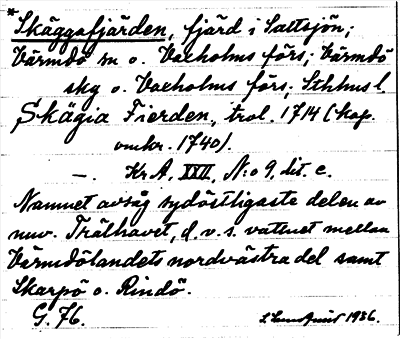 *Skäggafjärden, fjärd i Saltsjön;
Värmdö sn o. Vaxholms förs; Värmdö
skg o. Vaxholms förs; Sthlms l.
Skägia Fierden, trol. 1714 (kop.
omkr. 1740).
—. Kr. A, XXII, N:o 9, lit. c.
Namnet avsåg sydöstligaste delen av
nuv. Trälhavet, d. v. s. vattnet mellan
Värmdölandets nordvästra del samt
Skarpö o. Rindö.
G. 76. 1936.